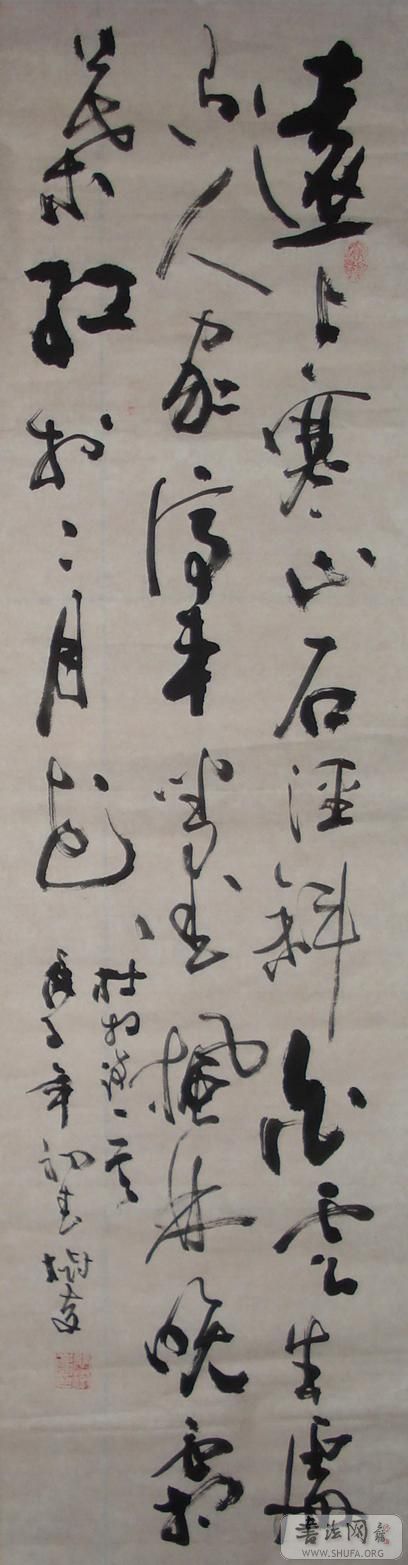 遠上寒山石徑斜白雲生處
有人家停車坐愛楓林晚霜
葉紅於二月花
杜牧詩一首
子年初春樹
書法网
WWW.SHUFA.ORG